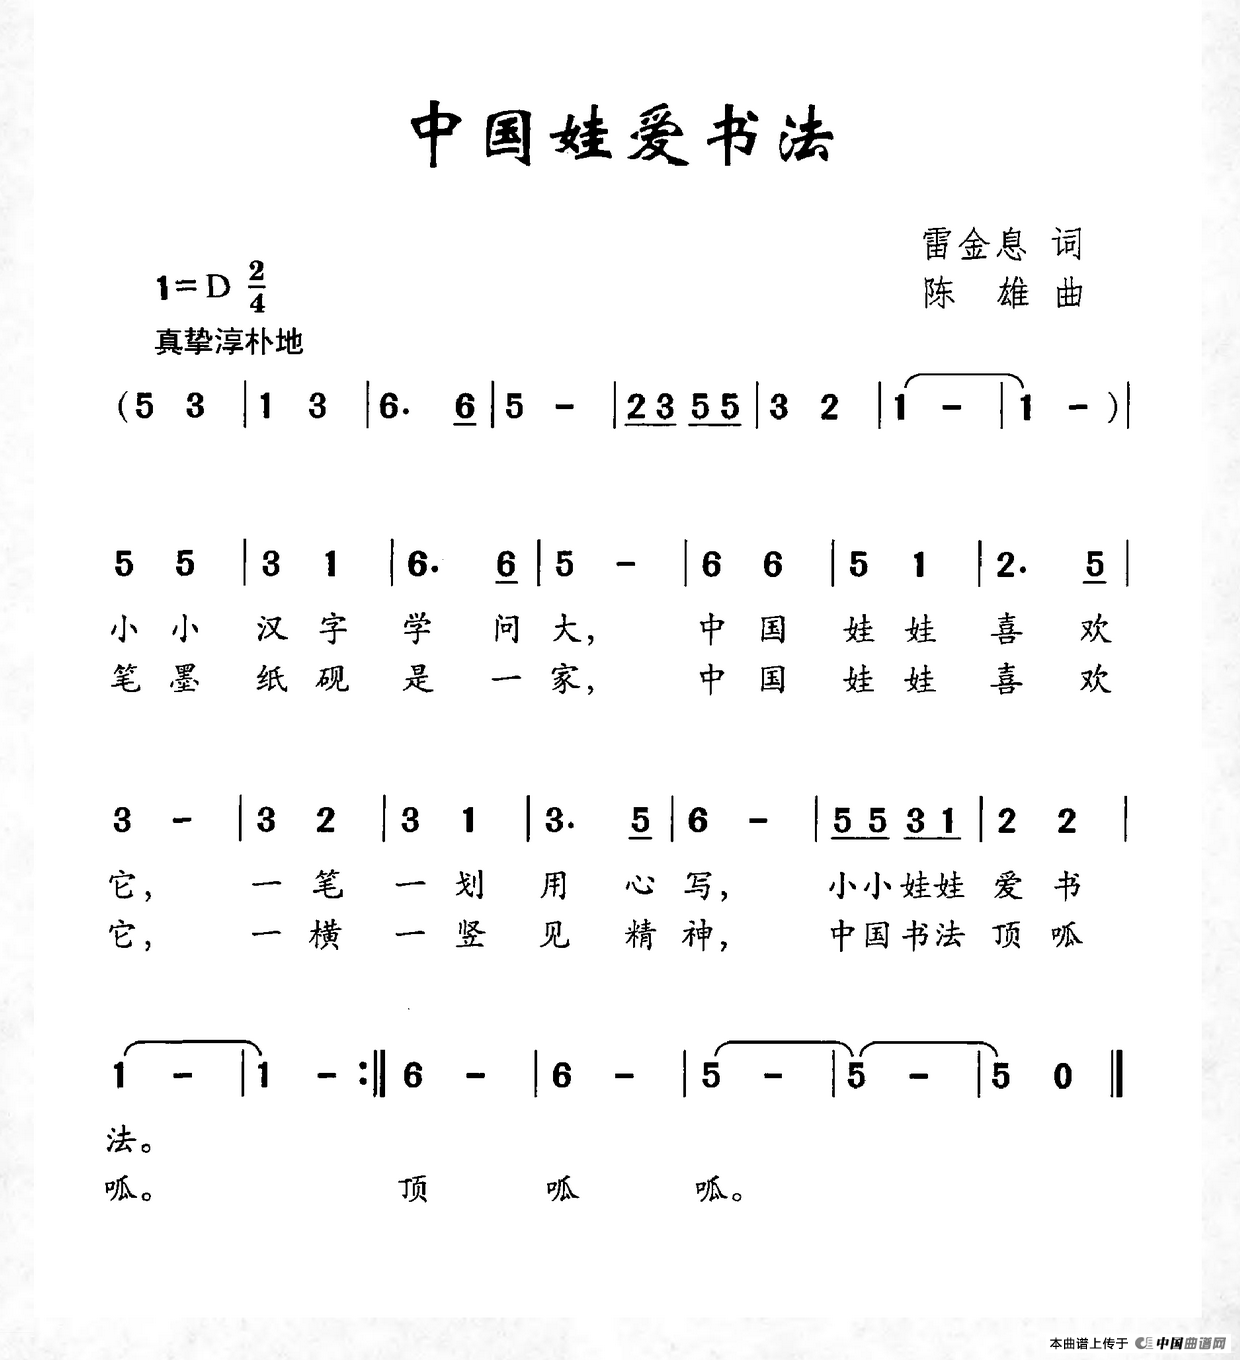 中国娃爱书法
雷金息 词
1=D 2/4
陈 雄 曲
真挚淳朴地
(5 3 | 1 3 | 6. 6 | 5 - | 23 55 | 3 2 | 1 - | 1 - )|
5 5 | 3 1 | 6. 6 | 5 - | 6 6 | 5 1 | 2. 5 |
小 小 汉 字 学 问 大, 中 国 娃 娃 喜 欢
笔 墨 纸 砚 是 一 家, 中 国 娃 娃 喜 欢
3 - | 3 2 | 3 1 | 3. 5 | 6 - | 55 31 | 2 2 |
它, 一 笔 一 划 用 心 写, 小小娃娃 爱 书
它, 一 横 一 竖 见 精 神, 中国书法 顶 呱
1 - | 1 - :‖ 6 - | 6 - | 5 - | 5 - | 5 0 ‖
法。
呱。 顶 呱 呱。
本曲谱上传于 中国曲谱网